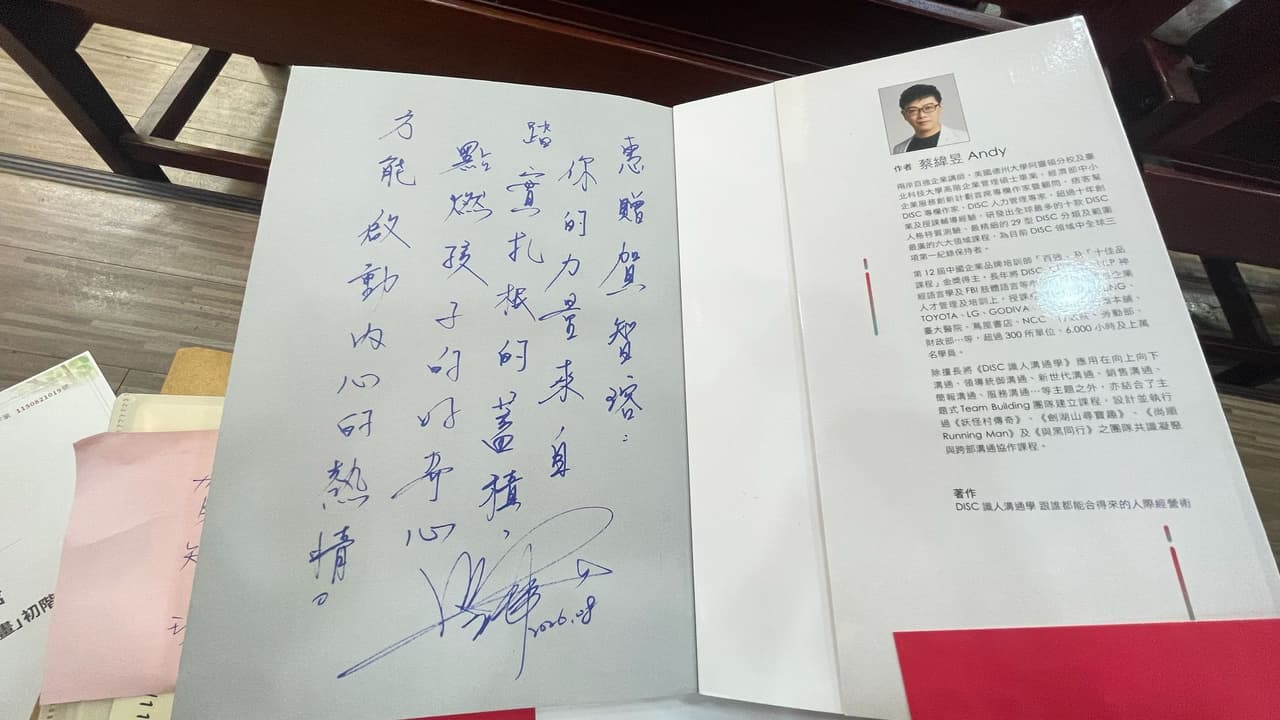 惠贈賀智瑢：
你的力量來自
踏實扎根的蓄積，
點燃孩子的好奇心
方能啟動內心的熱情。
2026.08
作者 蔡緯昱 Andy
兩岸百強企業講師，美國德州大學阿靈頓分校及臺
北科技大學高階企業管理碩士畢業，經濟部中小
企業服務創新計劃首席專欄作家暨顧問，痞客幫
DISC 專欄作家，DISC 人力管理專家，超過十年創
業及授課輔導經驗，研發出全球最多的十款 DISC
人格特質測驗、最精細的 29 型 DISC 分類及範圍
最廣的六大領域課程，為目前 DISC 領域中全球三
項第一紀錄保持者。
第 12 屆中國企業品牌培訓師「百強」及「十佳品
課程」金獎得主，長年將 DISC
經語言學及 FBI 肢體語言等
人才管理及培訓上，授課
TOYOTA、LG、GODIVA
臺大醫院、蔦屋書店、NCC
財政部…等，超過 300 所單位、6,000 小時及上萬
名學員。
除擅長將《DISC 識人溝通學》應用在向上向下
溝通、領導統御溝通、新世代溝通、銷售溝通、
簡報溝通、服務溝通…等主題之外，亦結合了主
題式 Team Building 團隊建立課程，設計並執行
過《妖怪村傳奇》、《劍湖山尋寶趣》、《尚順
Running Man》及《與黑同行》之團隊共識凝聚
與跨部溝通協作課程。
著作
DISC 識人溝通學 跟誰都能合得來的人際經營術
1150821019號
畫」初階